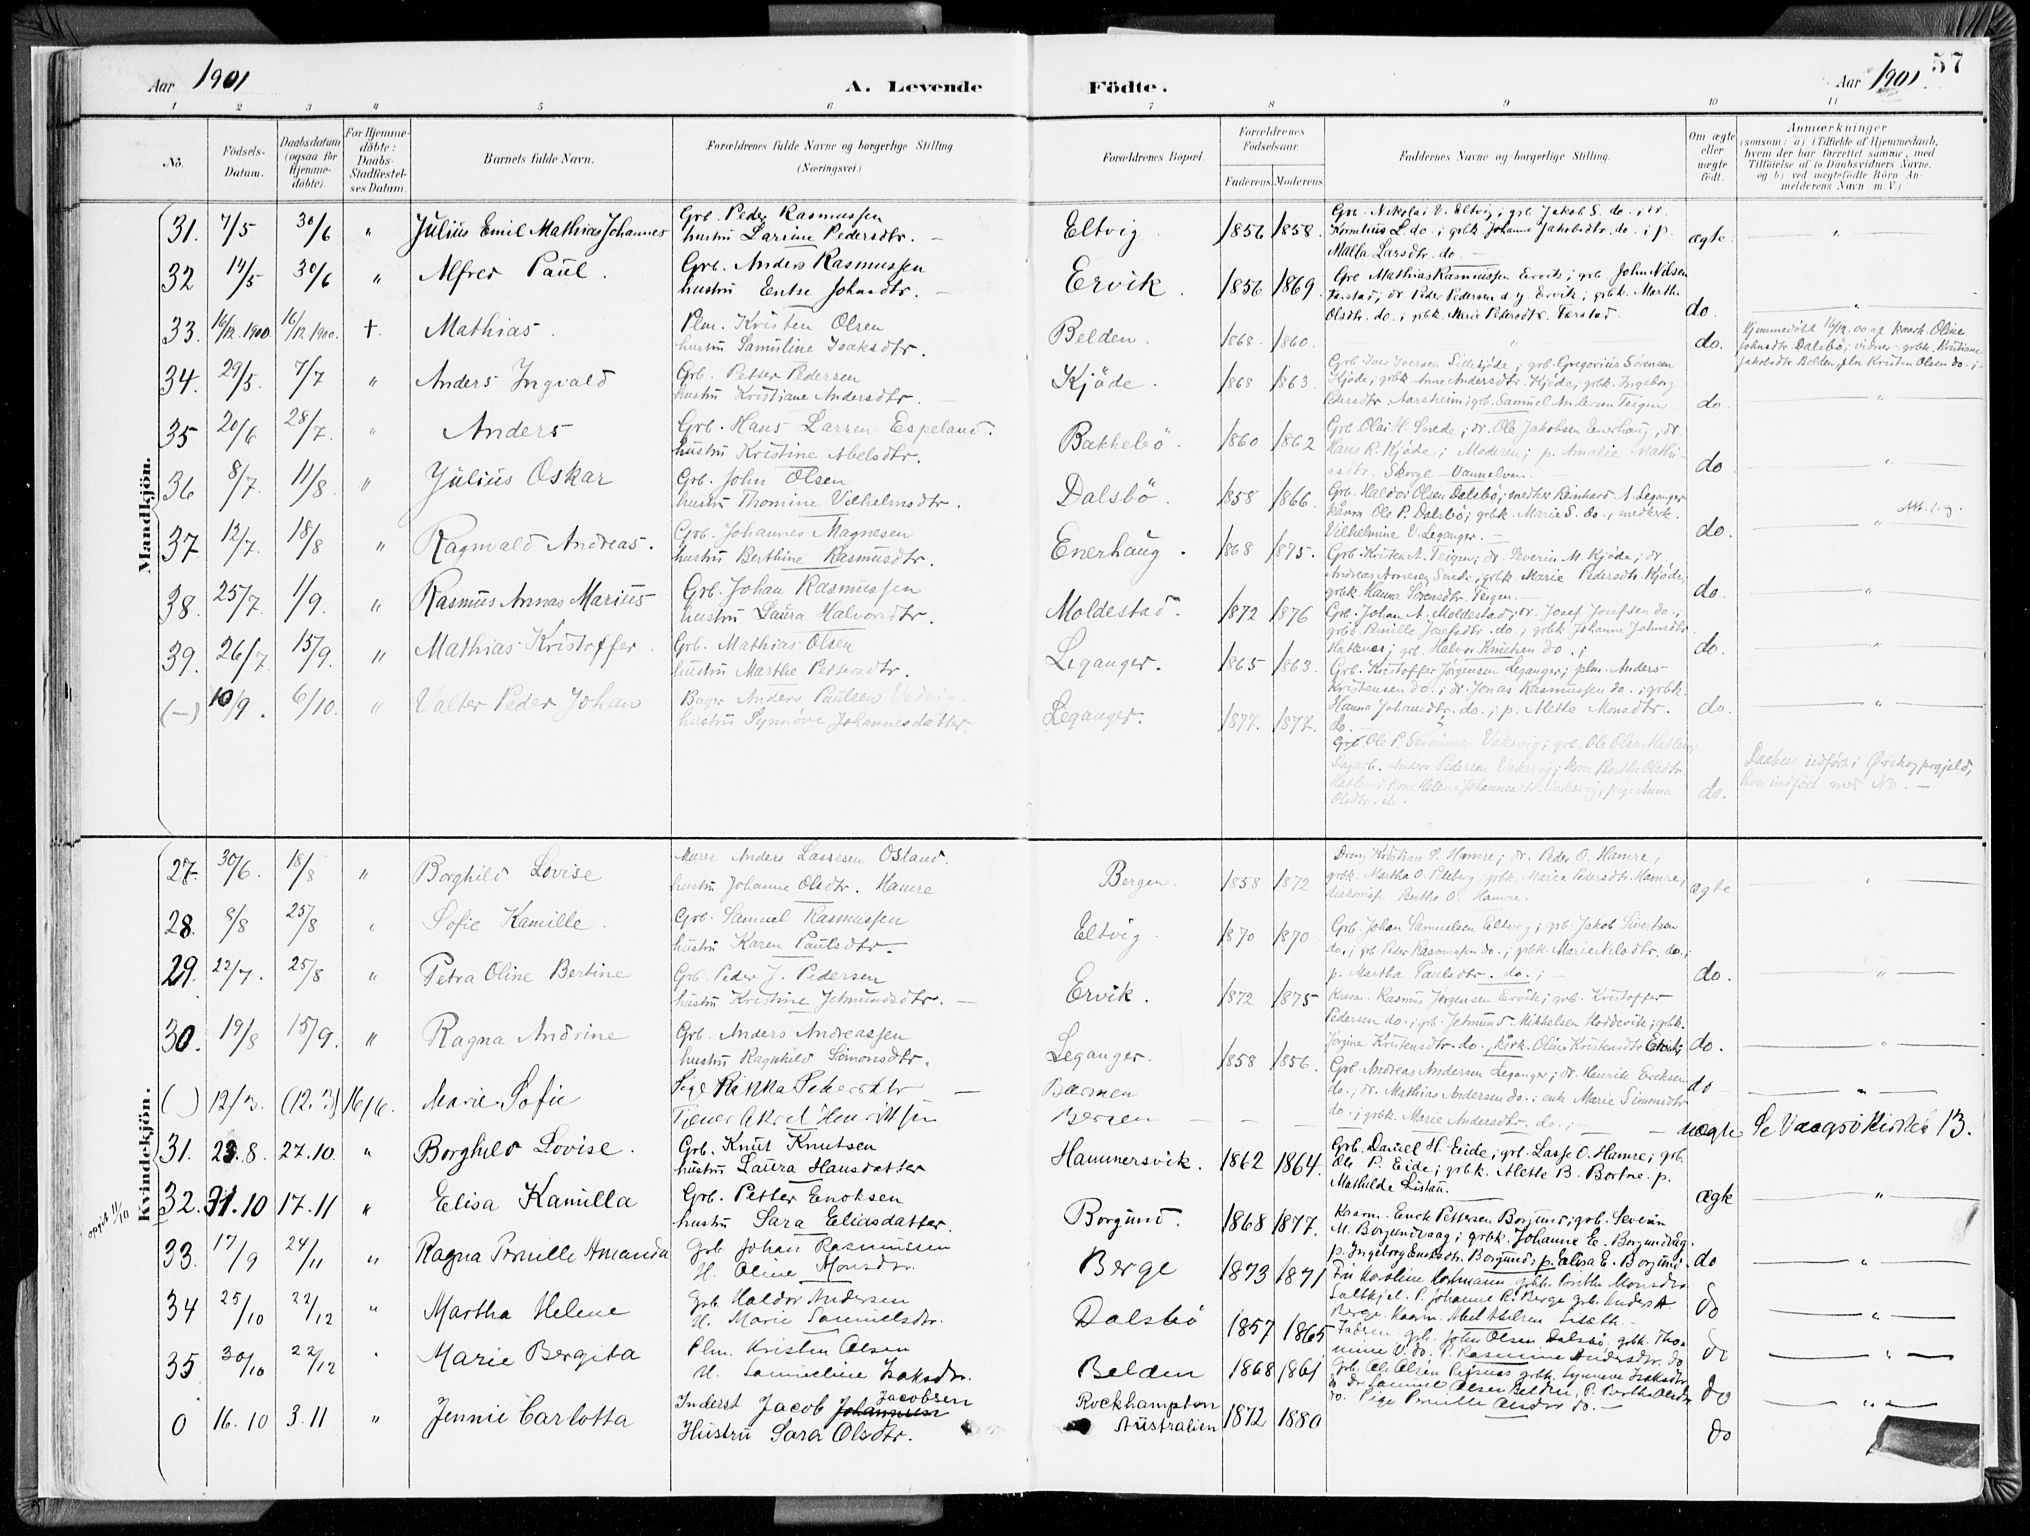 57
Aar 1901
A. Levende Födte.
Aar 1901
1 2 3 4 5 6 7 8 9 10 11
No.
Födsels-Datum.
Daabsdatum (ogsaa for Hjemme-döbte).
For Hjemme-döbte: Daabs-Stadfæstel-ses Datum.
Barnets fulde Navn.
Forældrenes fulde Navne og borgerlige Stilling (Næringsvei.)
Forældrenes Bopæl.
Forældrenes Födselsaar.
Faderens Moderens
Faddernes Navne og borgerlige Stilling.
Om ægte eller uægte födt.
Anmærkninger
(saasom: a) i Tilfælde af Hjemmedaab, hvem der har forrettet samme, med Tilföielse af to Daabsvidners Navne, og b) ved uægtefödte Börn Anmelderens Navn m. V.)
Mandkjön.
31. 7/5 30/6 " Julius Emil Mathias Johannes
Grb. Peder Rasmussen
hustru Larsine Pedersdtr. —
Eltvig 1856 1858.
Grb. Nikolai V. Eltvig; grb. Jakob S. do.; dr.
Kornelius L. do.; grbk. Johanne Jakobsdtr. do.; p.
Malla Larsdtr. do. —
ægte "
32 14/5 30/6 " Alfred Paul.
Grb. Anders Rasmussen
hustru Entse Johnsdtr. —
Ervik. 1856 1869.
Grb. Mathias Rasmussen Ervik; grb. John Nilsen
Færstad; dr. Peder Pedersen d. y. Ervik; grbk. Marthe
Olsdtr. do.; grbk. Marie Petersdtr. Færstad.
do. "
33. 16/12. 1900 16/12. 1900. + Mathias.
Plm. Kristen Olsen
hustru Samuline Isaksdtr.
Belden. 1868. 1860. "
do.
Hjemmedöbt 16/12. 00 af kaark. Oline
Johnsdtr. Dalsbö; vidner: grbk. Kristiane
Jakobsdtr. Belden, plm Kristen Olsen do.;
34. 29/5. 7/7 " Anders Ingvald
Grb. Petter Pedersen
hustru Kristiane Andersdtr. —
Kjöde. 1868 1863.
Grb. Ivar Iversen Lillekjöde; grb. Gregorius Sörensen
Kjöde; grbk. Anne Andersdtr. Kjöde; grbk. Ingeborg
Pedersdtr. Aarsheim; grb. Samuel Andersen Teigen
do "
35 20/6 28/7. " Anders
Grb. Hans Larsen Espeland.
hustru Kristine Abelsdtr.
Bakkebö. 1860 1862
Grb. Olai H. Snede; dr. Ole Jakobsen Enerhaug, dr.
Hans R. Kjöde; Moderen; p. Amalie Mathi-
asdtr. Skorge Vannelven. —
do "
36 8/7. 11/8. " Julius Oskar
Grb. John Olsen
hustru Thomine Vilhelmsdtr.
Dalsbö. 1858 1866.
Grb. Haldor Olsen Dalsbö; medhk. Reinhard A. Leganger
kaarm Ole P. Dalsbö; grbk. Marie S. do.; medhk.
Vilhelmine V. Leganger. —
do. "
37 12/7. 18/8 " Ragnvald Andreas.
Grb. Johannes Magnesen
hustru Berthine Rasmusdtr.
Enerhaug. 1868 1875.
Grb. Kristen A. Teigen; dr. Severin M. Kjöde; dr.
Andreas Annesen Snede; grbk. Marie Pedersdtr. Kjöde;
grbk. Hanna Sörensdtr. Teigen. —
do. "
38. 25/7. 1/9. " Rasmus Annas Marius
Grb. Johan Rasmussen
hustru Laura Halvorsdtr.
Moldestad. 1872 1876
Grb. Johan A. Moldestad; dr. Josef Josefsen do.;
grbk. Pernille Josefsdtr. do.; grbk. Johanne Johnsdtr.
Hatlenes; grb. Halvor Knutsen do.;
do. "
39. 26/7 15/9. " Mathias Kristoffer
Grb. Mathias Olsen
hustru Marthe Pettersdtr.
Leganger. 1865 1863.
Grb. Kristoffer Jörgensen Leganger; plm. Anders
Kristensen do.; dr. Jonas Rasmussen do.; grbk.
Hanna Johansdtr. do.; p. Alette Monsdtr.
do.
do. "
(—) 10/9. 6/10. " Valter Peder Johan
Bager Anders Paulsen Vedvig.
hustru Synnöve Johannesdatter.
Leganger. 1877. 1877.
Grb. Ole P. Severinsen Vaksvig; grb. Ole Olsen Hatlen;
Dagarb. Anders Pedersen Vaksvig; kone Berthe Olsdtr.
Hatlen; kone Helene Johannesdtr. Vaksvig, pige Anna
Olsdtr. ib.
do.
Daaben udfört i Örskog prgjeld,
hvor indfört med No. —
Kvindekjön.
27. 30/6. 18/8 " Borghild Lovise
Murer Anders Lassesen Ostand.
hustru Johanne Olsdtr. Hamre
Bergen. 1858 1872
Dreng Kristian P. Hamre; dr. Peder O. Hamre;
grbk. Martha O. Refberg; grbk. Marie Pedersdtr. Hamre;
diakonisse Berthe O. Hamre.
ægte "
28. 8/8 25/8 " Sofie Kamille.
Grb. Samuel Rasmussen
hustru Karen Paulsdtr. —
Eltvig 1870 1870
Grb. Johan Samuelsen Eltvig; grb. Jakob Sivertsen
do.; grb. Peder Rasmussen do.; grbk. Marie Nilsdtr. do.;
p. Martha Paulsdtr. do.; —
do. "
29. 22/7. 25/8 " Petra Oline Bertine
Grb. Peder J. Pedersen
hustru Kristine Jetmundsdtr. —
Ervik. 1872 1875
Kaarm. Rasmus Jörgensen Ervik; grb. Kristoffer
Pedersen do.; grb. Jetmund Mikkelsen Hoddevik; grbk.
Jörgine Kristensdtr. do., kark. Oline Kristensdtr. Ervik;
do. "
30. 19/8 15/9. " Ragna Andrine
Grb. Anders Andreassen
hustru Ragnhild Simonsdtr.
Leganger. 1858 1856.
Grb. Andreas Andersen Leganger; dr. Henrik Eriksen
do.; dr. Mathias Andersen do.; enk. Marie Simonsdtr.
do.; grbk. Marie Andersdtr. do.; —
do "
( ) 12/3. (12.3) 16/6. Marie Sofie
Pige Rikka Pedersdtr —
Tjener Aksel Henriksen
Barmen
Bergen
uægte Se Vaagsö Kirkeb 13.
31. 23.8. 27.10. " Borghild Lovise.
Grb. Knut Knutsen
hustru Laura Hansdatter
Hammersvik. 1862 1864.
Grb. Daniel H. Eide; grb. Lasse O. Hamre; grb.
Ole P. Eide; grbk. Alette B. Bortne. p.
Mathilde Listau.
ægte "
opgivet 11/10
32. 31.10 17.11 " Elisa Kamilla
Grb. Petter Enoksen
hustru Sara Eliasdatter.
Borgund. 1868 1877.
Kaarm. Enok Pettersen Borgund; grb. Severin
M. Borgundvaag; grbk. Johanne E. Borgundvåg.
p. Ingeborg Enoksdtr. Borgund; p. Elisa E. Borgund.
do "
33. 17/9 24/11 " Ragna Pernille Amanda
Grb Johan Rasmussen
H. Oline Monsdtr.
Berge 1873 1871
Fru Karoline Hartmann, grbk. Brithe Monsdtr
Saltkjel. P. Johanne R. Berge grb. Anders A
Berge. Kaarm. Abel Abelsen Liseth. —
do "
34 25/10 22/12 " Martha Helene
Grb. Haldor Andersen
H. Marie Samuelsdtr.
Dalsbö 1857 1865
Fadren, grb. John Olsen Dalsbö, grbk. Tho-
mine V. do. P. Rasmine Andersdtr. do
do "
35 30/10 22/12 " Marie Bergitha
Plm. Kristen Olsen
H. Samueline Isaksdtr.
Belden 1868 1861
Grb. Ole Olsen Leirnes grbk. Synneve Isaksdtr
do. Dr Samuel Olsen Belden, P. Berthe Olsdtr
do. Pige Pernille Olsdtr do. —
do "
0 16.10 3.11 " Jennie Carlotta
Inderst Jacob Johannesen Jacobsen
Hustru Sara Olsdtr.
Rockhampton
Australien 1872 1880
do